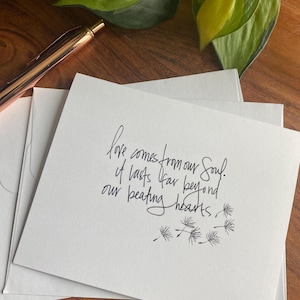 love comes from our soul.
it lasts far beyond
our beating hearts.